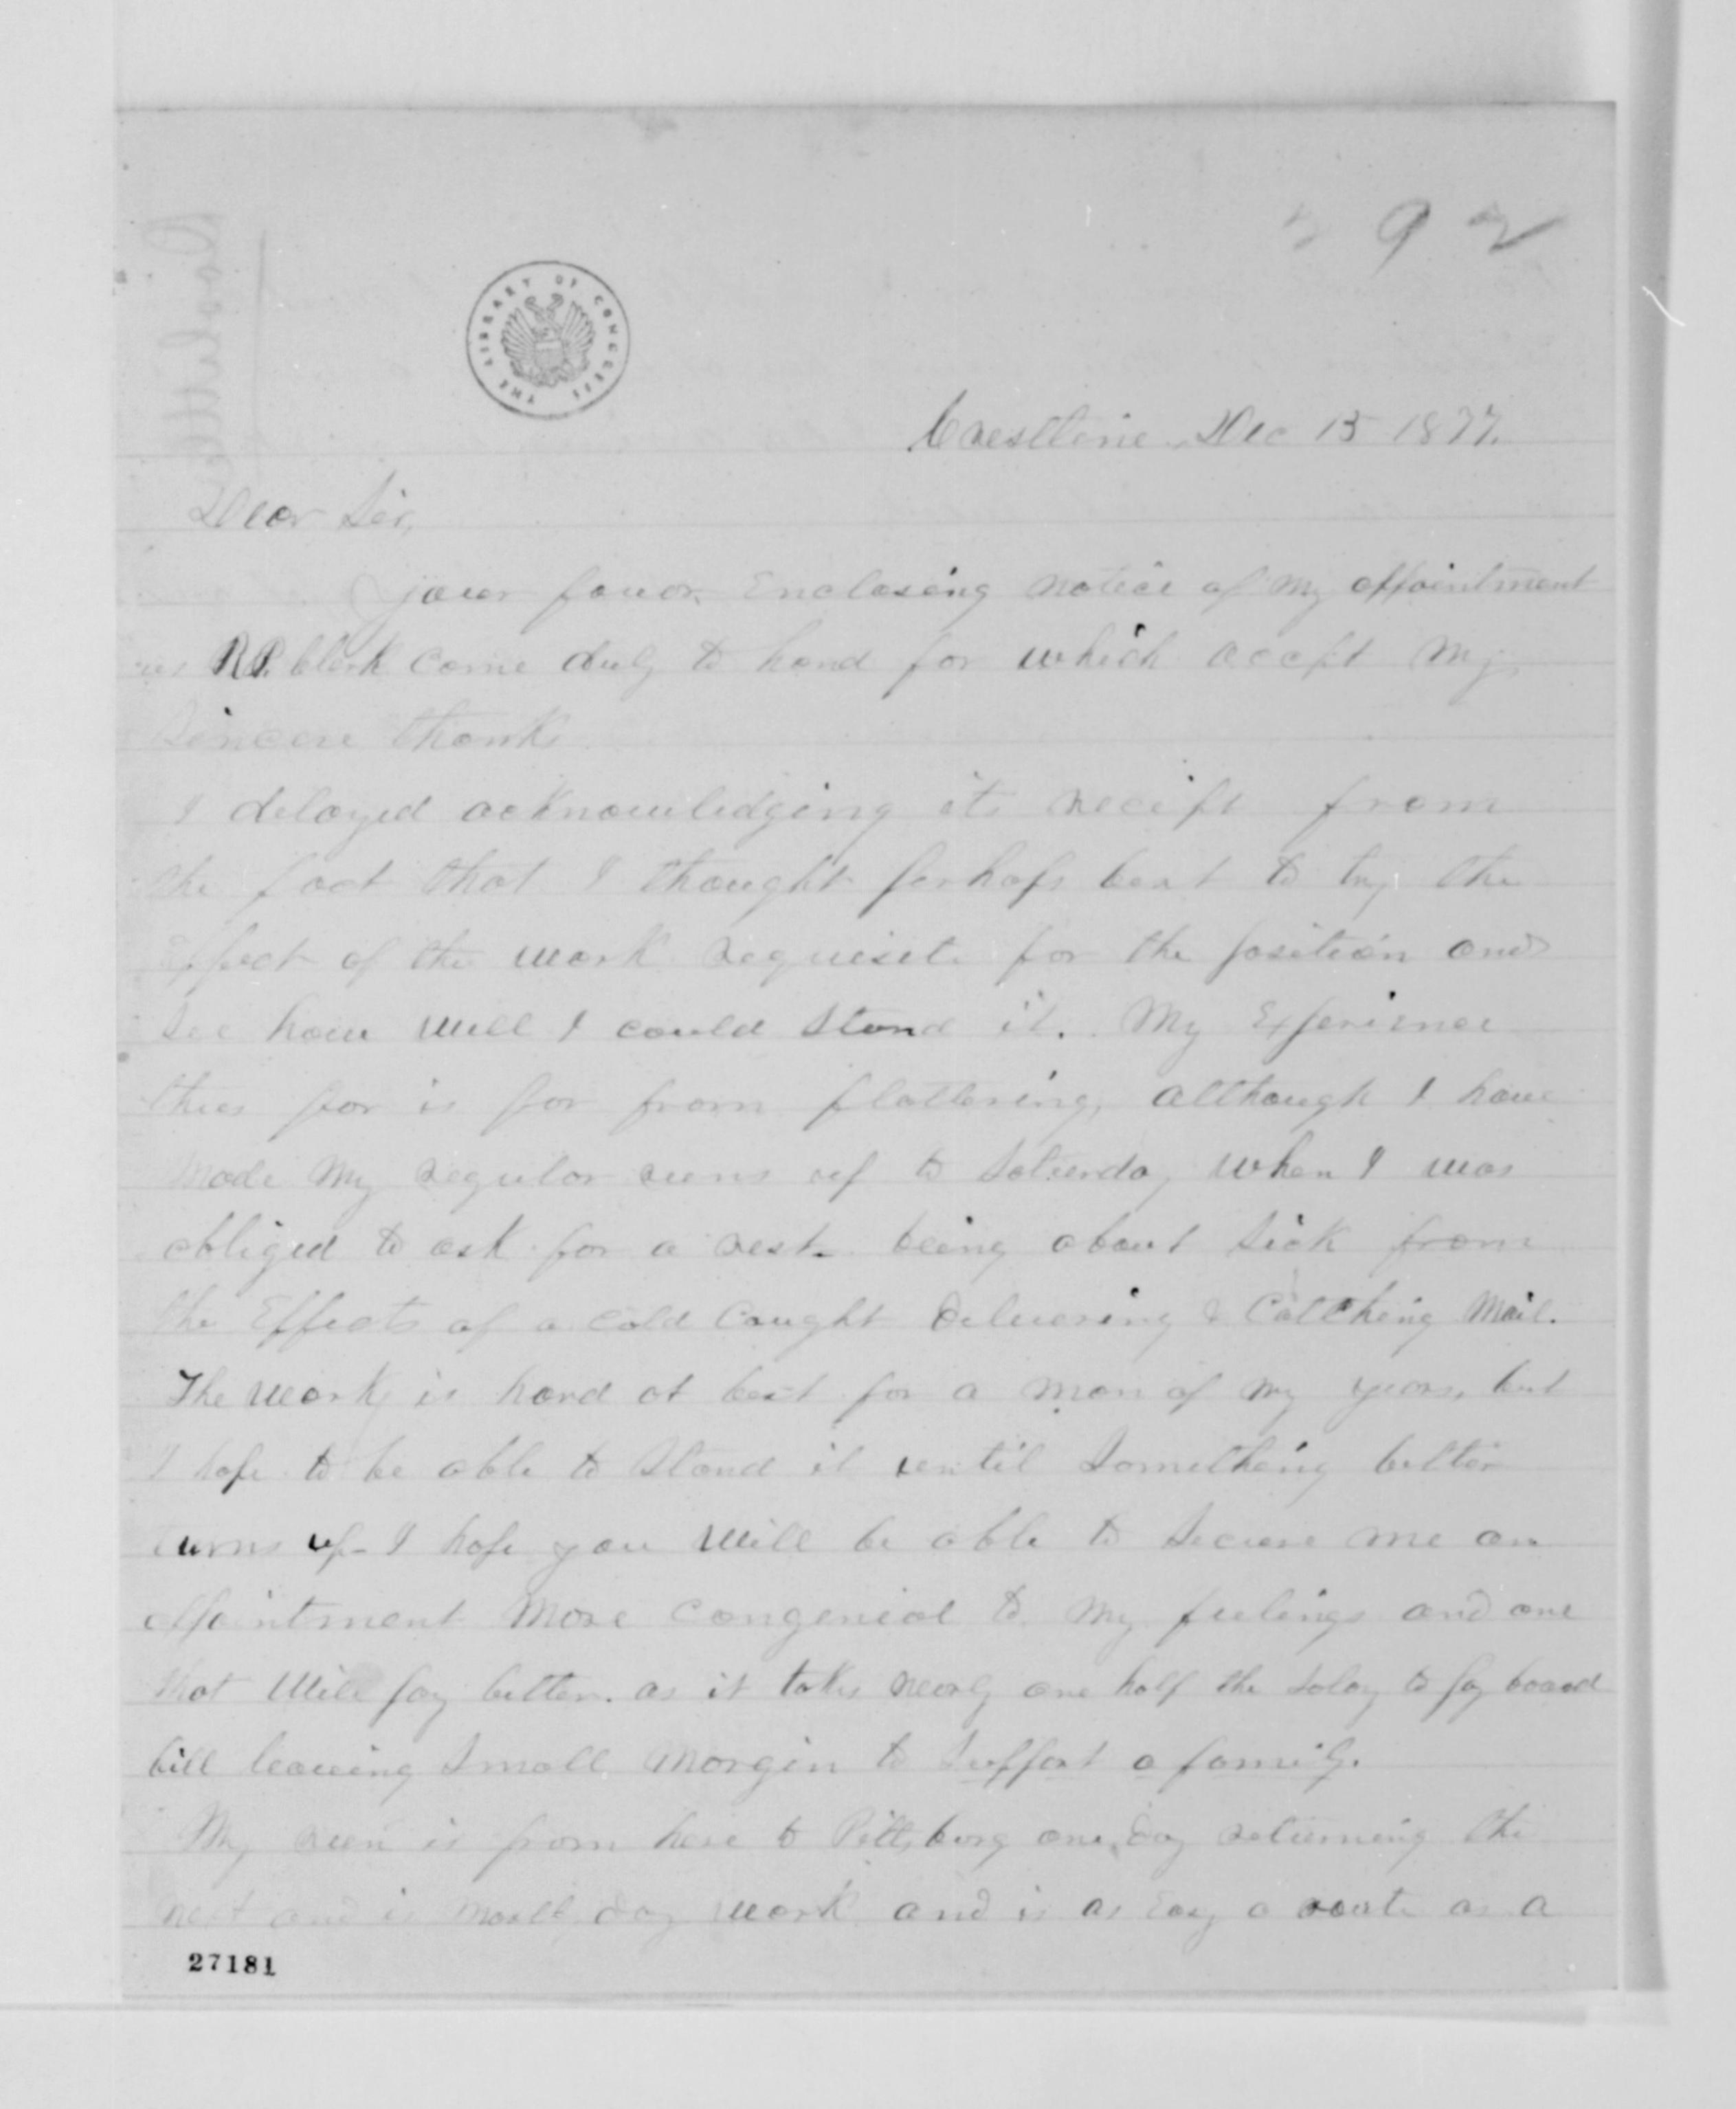 292
THE LIBRARY OF CONGRESS
Crestline Dec 15 1877.
Dear Sir,
your favor Enclosing notice of my appointment
as R.P. Clerk came duly to hand for which accept my
Sincere thanks
I delayed acknowledging its receipt from
the fact that I thought perhaps best to try the
effect of the work requisite for the position and
See how well I could Stand it. My Experience
thus far is far from flattering, although I have
made my regular runs up to Saturday when I was
obliged to ask for a rest - being about Sick from
the Effects of a Cold Caught Delivering & Catching Mail.
The work is hard at best for a man of my years, but
I hope to be able to Stand it until Something better
turns up - I hope you will be able to Secure me an
appointment More Congenial to my feelings and one
that will pay better. as it takes nearly one half the Salary to pay board
bill leaving Small Margin to Support a family.
My run is from here to Pittsburg one day returning the
next and is mostly day work and is as Easy a route as a
27181